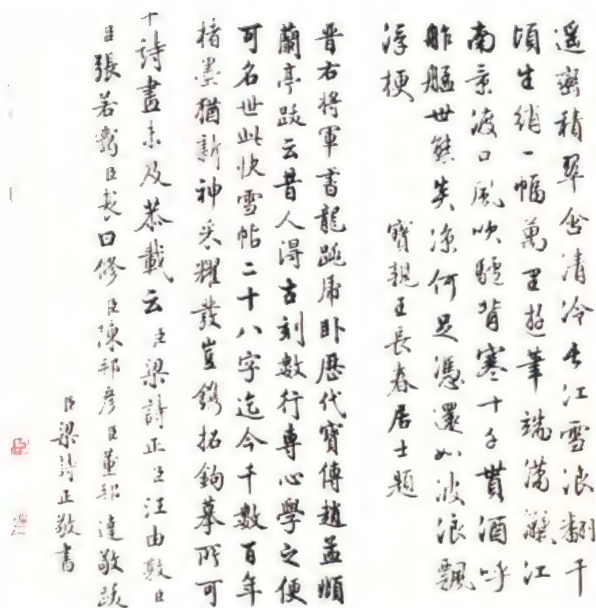 遥巒積翠含清冷長江雪浪翻千
頃生綃一幅萬里遊筆端蕩漾江
南景渡口風吹驢背寒十千貰酒呼
舴艋世態失涼何足憑還如波浪飄
浮梗
寶親王長春居士題
晉右將軍書龍跳虎卧歷代寶傳趙孟頫
蘭亭跋云昔人得古刻數行專心學之便
可名世此快雪帖二十八字迄今千數百年
楮墨猶新神采耀發豈鐫拓鉤摹所可
十詩畫未及恭載云臣梁詩正臣汪由敦臣
臣張若靄臣裘曰修臣陳邦彥臣董邦達敬跋
臣梁詩正敬書